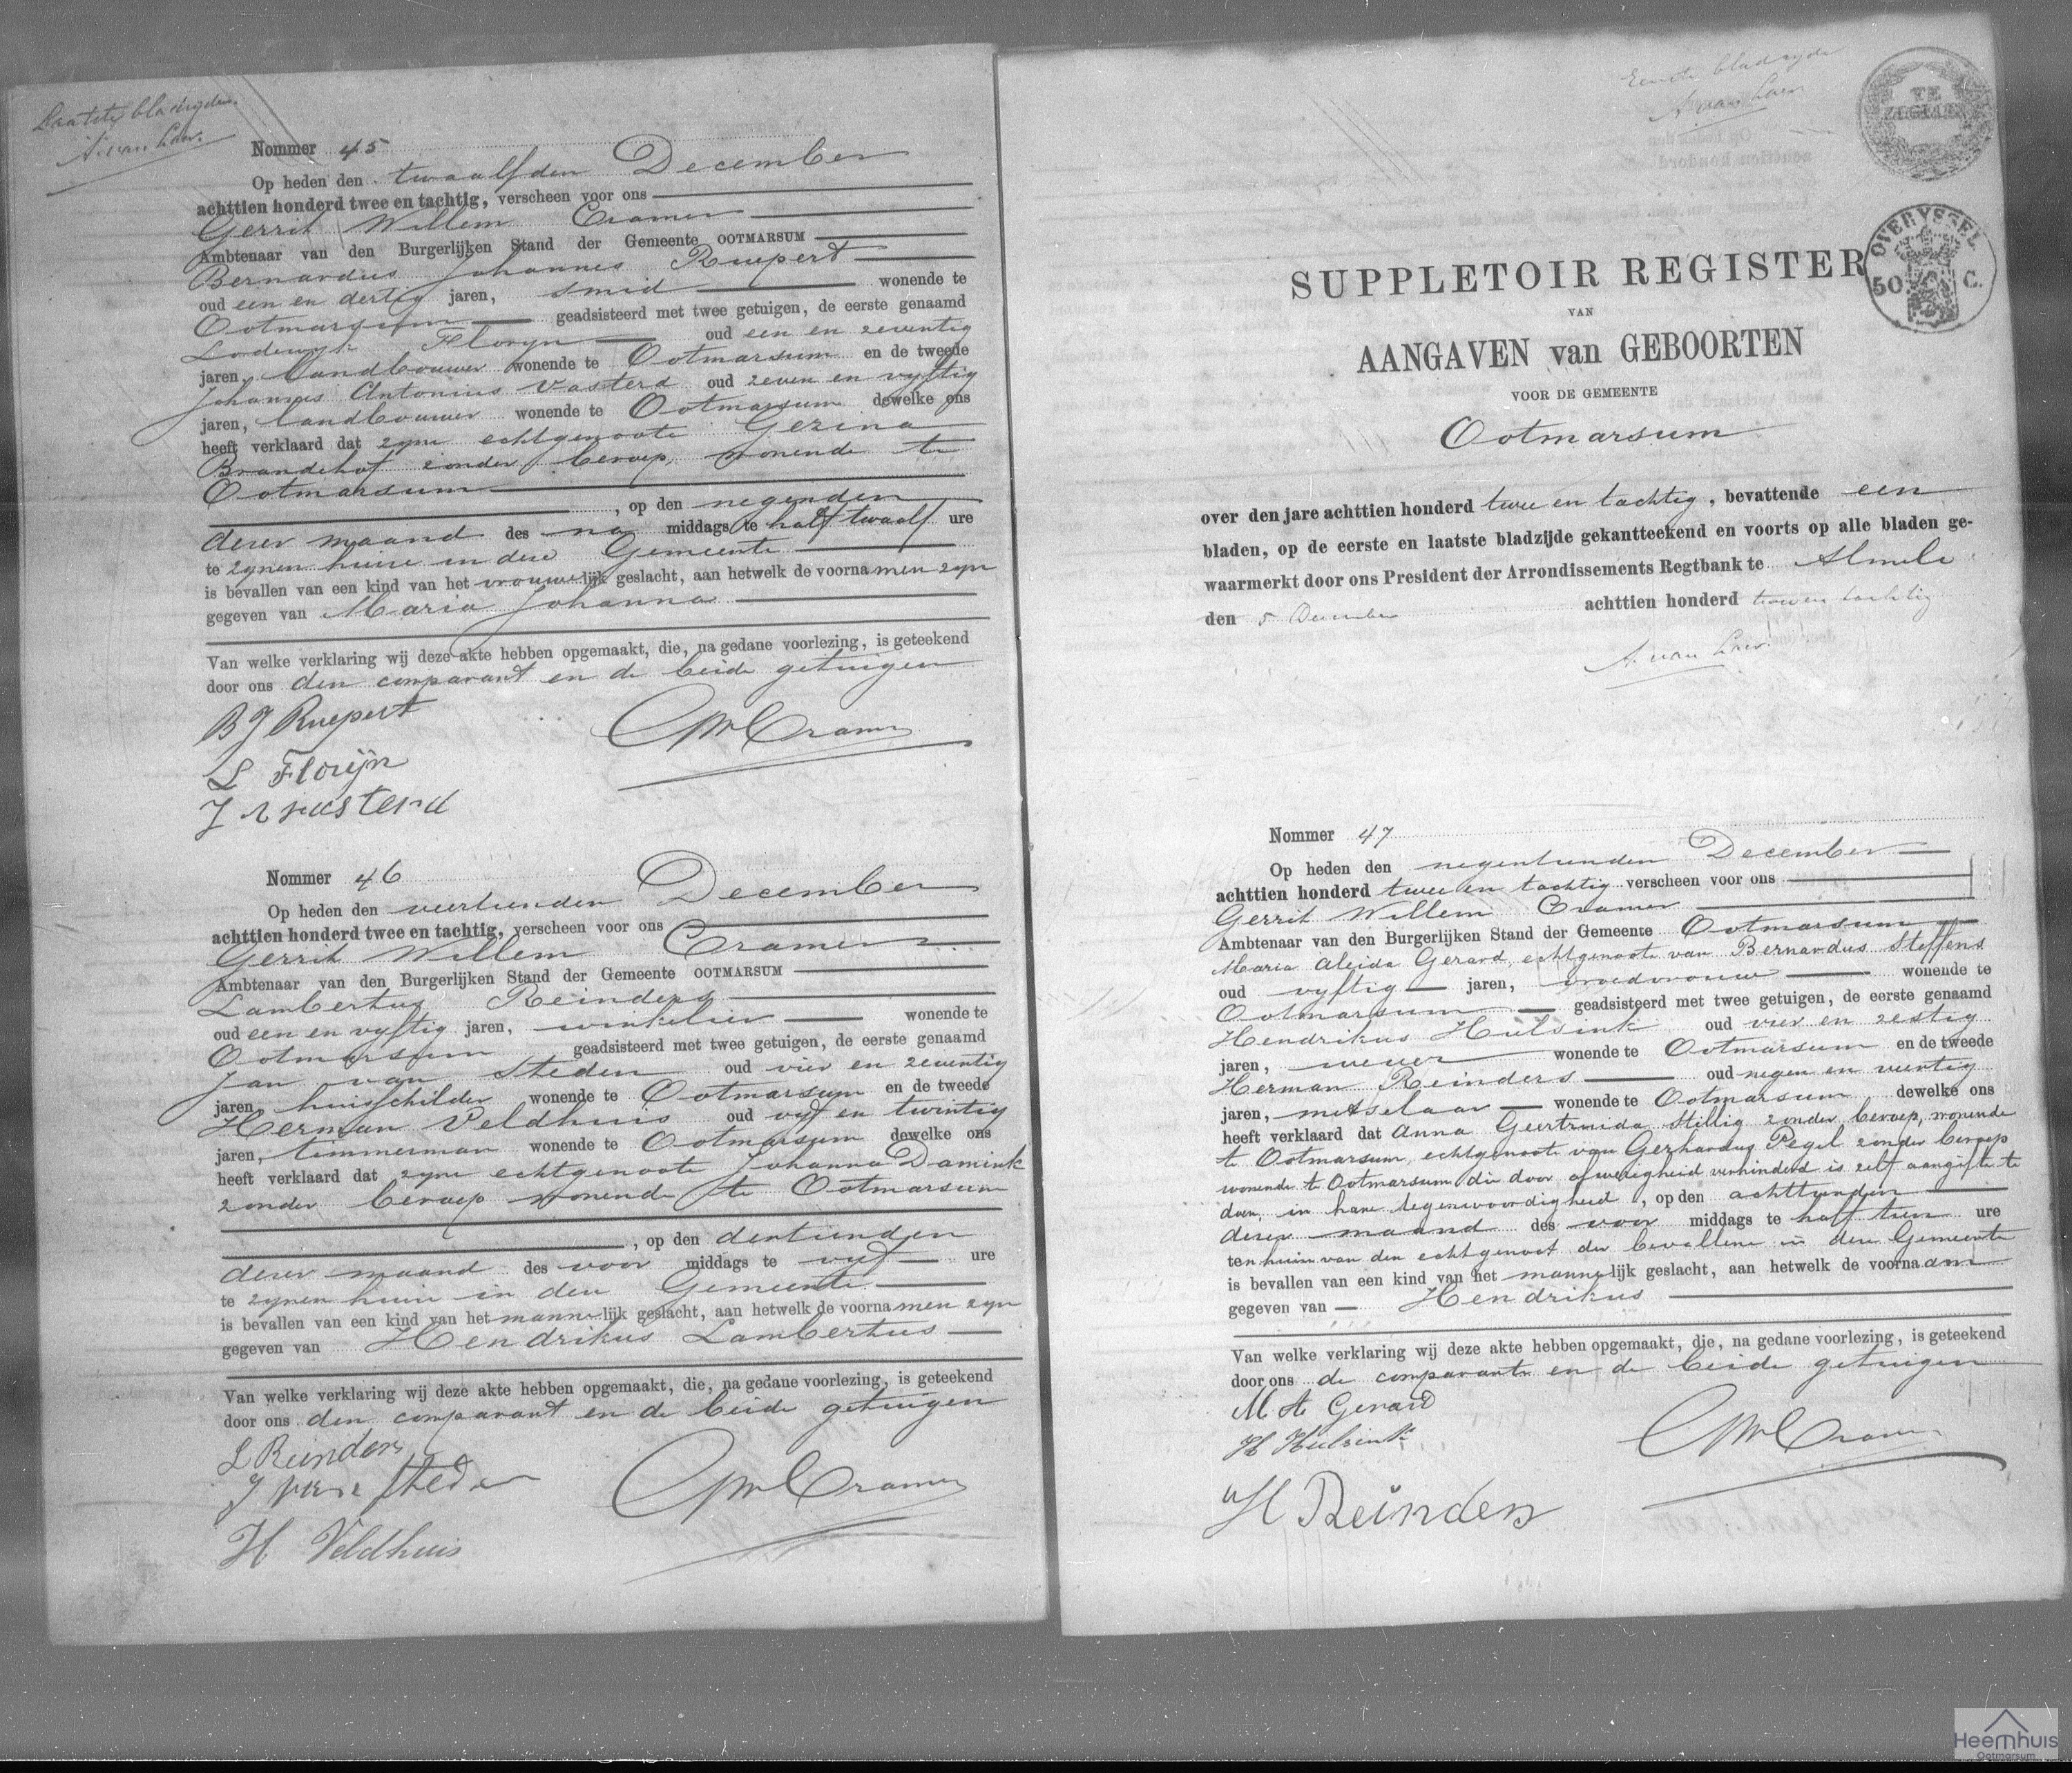 Laatste bladzyde.
A. van Laer.
Nommer 45
Op heden den twaalfden December
achttien honderd twee en tachtig, verscheen voor ons
Gerrit Willem Cramer
Ambtenaar van den Burgerlijken Stand der Gemeente OOTMARSUM
Bernardus Johannes Ruepert
oud een en dertig jaren, smid wonende te
Ootmarsum geadsisteerd met twee getuigen, de eerste genaamd
Lodewyk Floryn oud een en zeventig
jaren, landbouwer wonende te Ootmarsum en de tweede
Johannes Antonius Vasterd oud zeven en vyftig
jaren, landbouwer wonende te Ootmarsum dewelke ons
heeft verklaard dat zyne echtgenoote Gezina
Brandehof zonder beroep, wonende te
Ootmarsum
, op den negenden
dezer maand des na middags te half twaalf ure
te zynen huize in deze Gemeente
is bevallen van een kind van het vrouwelijk geslacht, aan hetwelk de voornamen zyn
gegeven van Maria Johanna
Van welke verklaring wij deze akte hebben opgemaakt, die, na gedane voorlezing, is geteekend
door ons den comparant en de beide getuigen
B J Ruepert
GW Cramer
L Florijn
J A Vasterd
Nommer 46
Op heden den veertienden December
achttien honderd twee en tachtig, verscheen voor ons
Gerrit Willem Cramer
Ambtenaar van den Burgerlijken Stand der Gemeente OOTMARSUM
Lambertus Reinders
oud een en vyftig jaren, winkelier wonende te
Ootmarsum geadsisteerd met twee getuigen, de eerste genaamd
Jan van Steden oud vier en zeventig
jaren, huisschilder wonende te Ootmarsum en de tweede
Herman Veldhuis oud vyf en twintig
jaren, timmerman wonende te Ootmarsum dewelke ons
heeft verklaard dat zyne echtgenoote Johanna Damink
zonder beroep wonende te Ootmarsum
, op den dertienden
dezer maand des voor middags te vyf ure
te zynen huize in deze Gemeente
is bevallen van een kind van het mannelijk geslacht, aan hetwelk de voornamen zyn
gegeven van Hendrikus Lambertus
Van welke verklaring wij deze akte hebben opgemaakt, die, na gedane voorlezing, is geteekend
door ons den comparant en de beide getuigen
L Reinders
J van Steden
GW Cramer
H Veldhuis
Eerste bladzyde
A. van Laer
TE ZEGELEN
OVERYSSEL
50 C.
SUPPLETOIR REGISTER
VAN
AANGAVEN van GEBOORTEN
VOOR DE GEMEENTE
Ootmarsum
over den jare achttien honderd twee en tachtig, bevattende een
bladen, op de eerste en laatste bladzijde gekantteekend en voorts op alle bladen ge-
waarmerkt door ons President der Arrondissements Regtbank te Almelo
den 5 December achttien honderd twee en tachtig
A. van Laer.
Nommer 47
Op heden den negentienden December
achttien honderd twee en tachtig verscheen voor ons
Gerrit Willem Cramer
Ambtenaar van den Burgerlijken Stand der Gemeente Ootmarsum
Maria Aleida Gerard, echtgenoote van Bernardus Steffens
oud vyftig jaren, vroedvrouw wonende te
Ootmarsum geadsisteerd met twee getuigen, de eerste genaamd
Hendrikus Hulsink oud vier en zestig
jaren, wever wonende te Ootmarsum en de tweede
Herman Reinders oud negen en veertig
jaren, metselaar wonende te Ootmarsum dewelke ons
heeft verklaard dat Anna Geertruida Stillig zonder beroep, wonende
te Ootmarsum, echtgenoote van Gerhardus Pegel zonder beroep
wonende te Ootmarsum die door afwezigheid verhinderd is zelf aangifte te
doen, in hare tegenwoordigheid, op den achttienden
dezer maand des voor middags te half tien ure
ten huize van den echtgenoot der bevallene in deze Gemeente
is bevallen van een kind van het mannelijk geslacht, aan hetwelk de voornaam
gegeven van Hendrikus
Van welke verklaring wij deze akte hebben opgemaakt, die, na gedane voorlezing, is geteekend
door ons de comparante en de beide getuigen
M A Gerard
H Hulsink
GW Cramer
H Reinders
Heemhuis
Ootmarsum